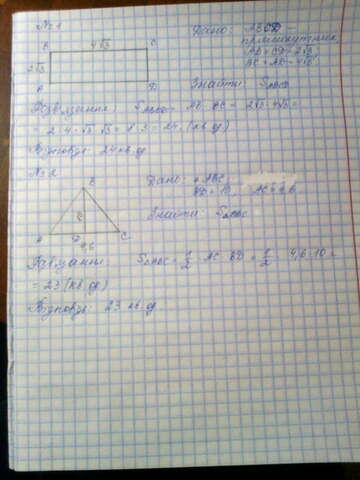 №1
Дано: ABCD
прямокутник
AB = CD = 2√3
BC = AD = 4√3
B 4√3 C
2√3
A D
Знайти: S ABCD
Розв'язання: S ABCD = AB · BC = 2√3 · 4√3 =
= 2 · 4 · √3 · √3 = 8 · 3 = 24 (кв. од)
Відповідь: 24 кв. од
№2
Дано: ABC
BD = 10 AC = 4,6
Знайти: S ABC
B
A D C
4,6
S ABC = 1/2 · AC · BD = 1/2 · 4,6 · 10 =
= 23 (кв. од)
Відповідь: 23 кв. од